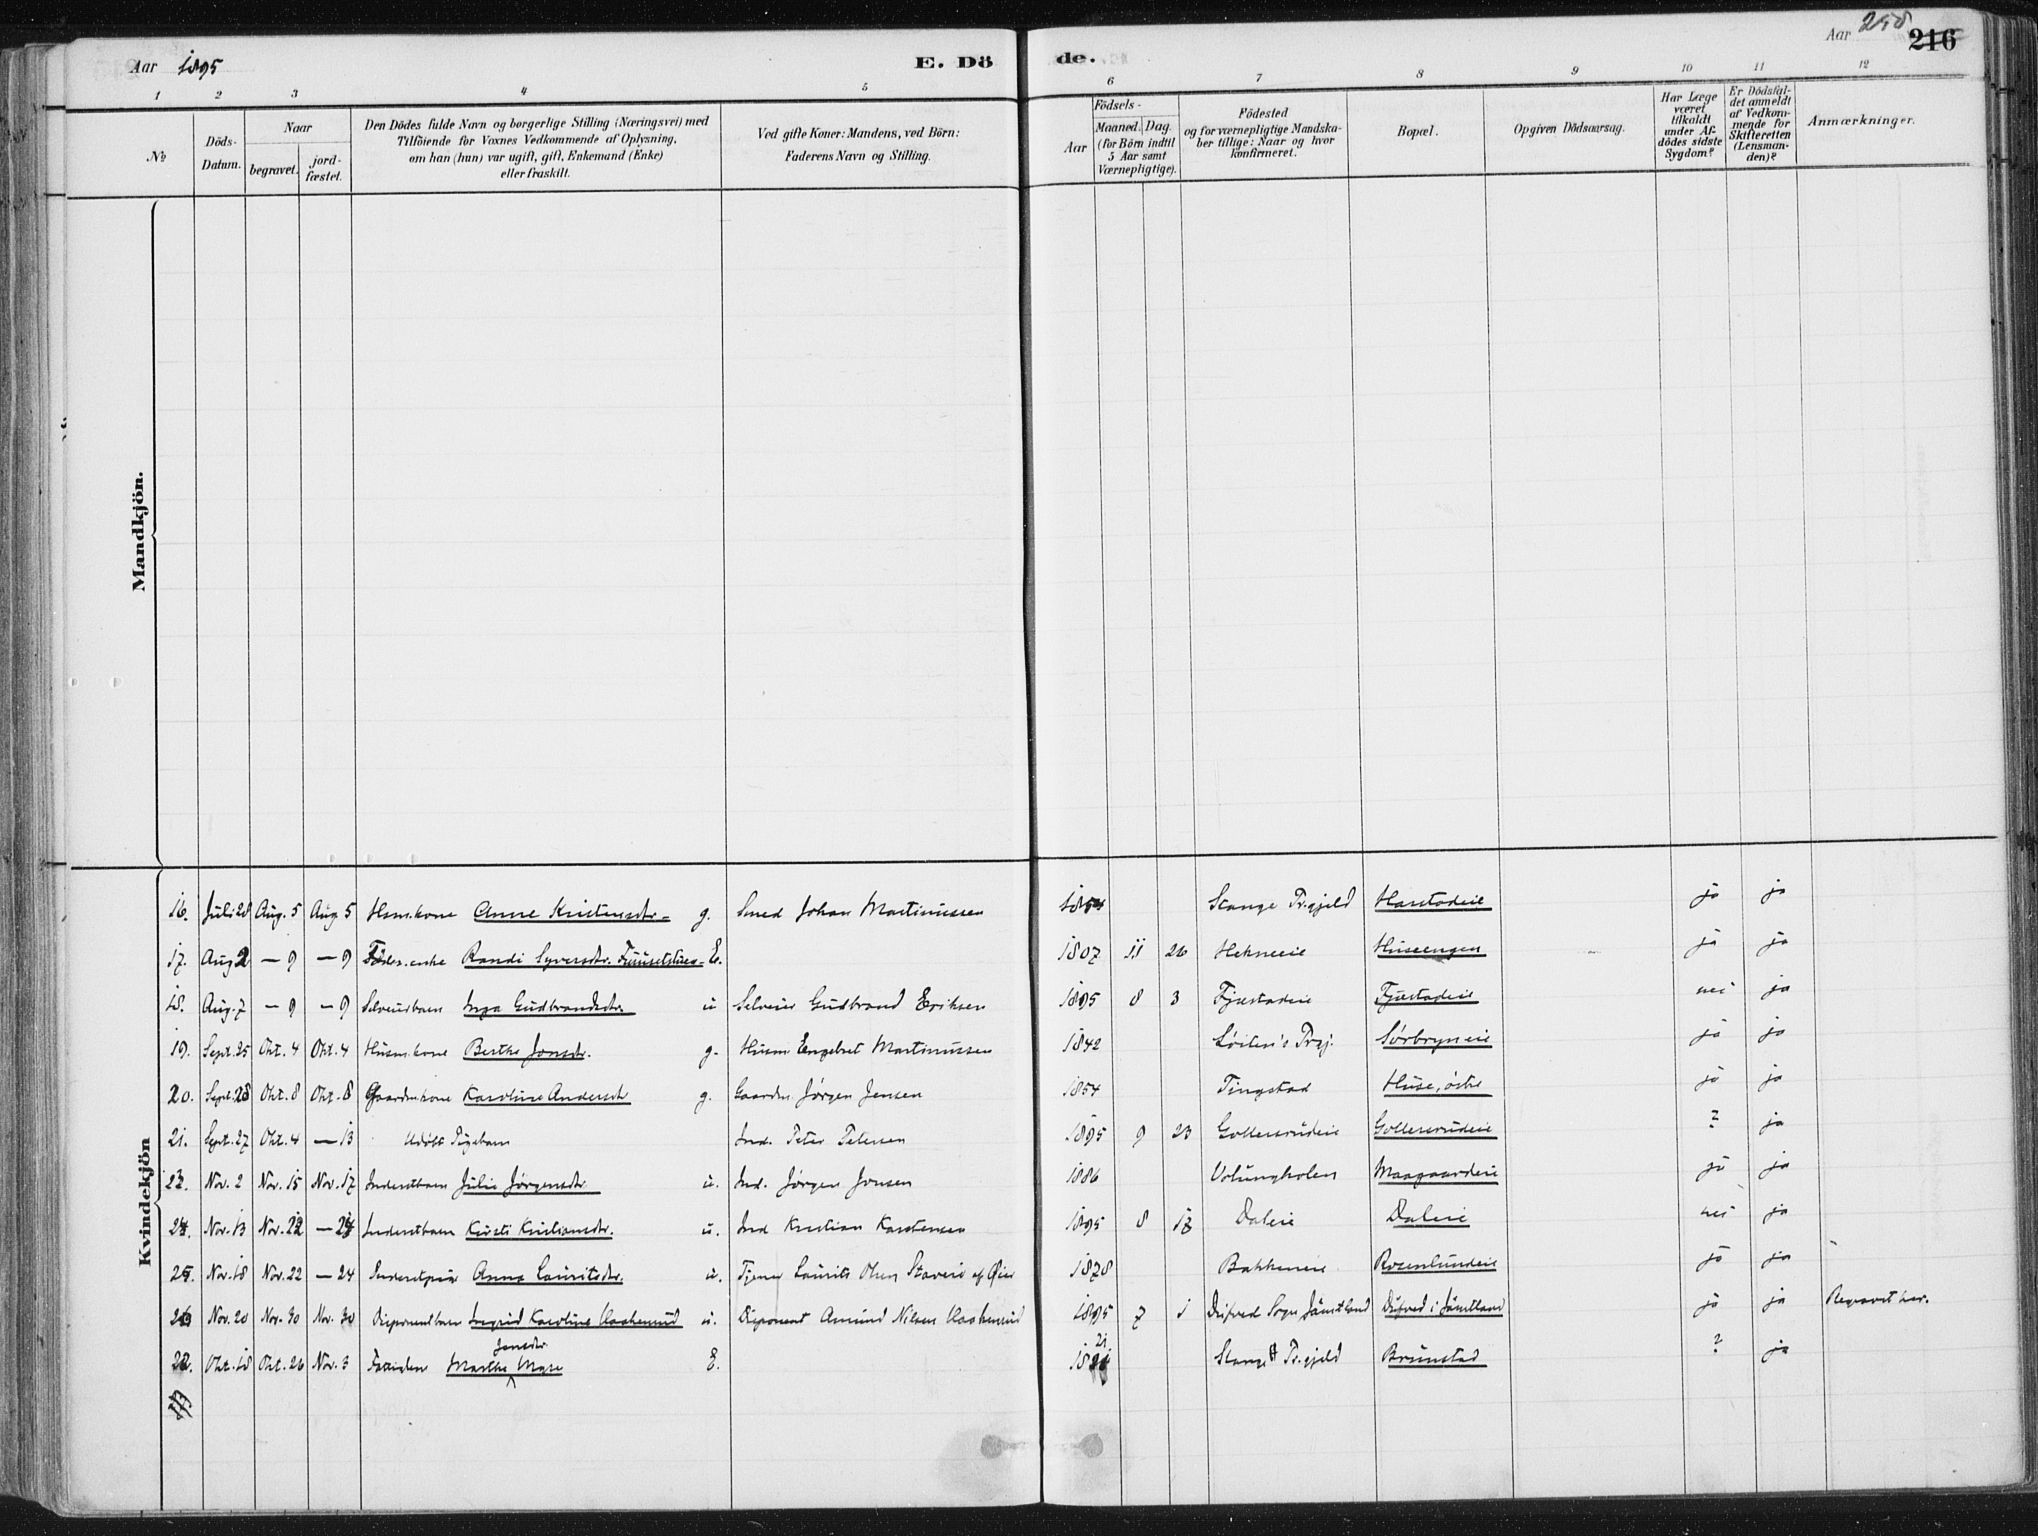 Aar 1895
E. Dö
de.
Aar
258
216
1 2 3 4 5 6 7 8 9 10 11 12
№
Döds-
Datum.
Naar
begravet.
jord-
fæstet.
Den Dödes fulde Navn og borgerlige Stilling (Næringsvei) med
Tilföiende for Voxnes Vedkommende af Oplysning,
om han (hun) var ugift, gift, Enkemand (Enke)
eller fraskilt.
Ved gifte Koner: Mandens, ved Börn:
Faderens Navn og Stilling.
Födsels-
Aar
Maaned. Dag.
(for Börn indtil
5 Aar samt
Værnepligtige).
Födested
og for værnepligtige Mandska-
ber tillige: Naar og hvor
konfirmeret.
Bopæl.
Opgiven Dödsaarsag.
Har Læge
været
tilkaldt
under Af-
dödes sidste
Sygdom?
Er Dödsfal-
det anmeldt
af Vedkom-
mende for
Skifteretten
(Lensman-
den)?
Anmærkninger.
Mandkjön.
Kvindekjön
16. Juli 28 Aug. 5 Aug 5 Husm.kone Anne Kristensdtr. g. Smed Johan Martinussen Stange Pr.gjeld Harstadeie ja ja
17. Aug 2 — 9 — 9 Randi Syversdtr. E. 1807 11 26 Hekneeie Huseengen ja ja
18. Aug. 7 — 9 — 9 Selveierbarn Inga Gudbrandsdtr. u Selveier Gudbrand Eriksen 1895 8 3 Fjæstadeie Fjæstadeie nei ja
19. Sept. 25 Okt. 4 Okt. 4 Husm.kone Berthe Jonsdtr. g. Husm Engebret Martinussen 1842 Løiten's Prgj. Sørbryneie ja ja
20. Sept. 28 Okt. 8 Okt. 8 Gaardm.kone Karoline Andersdtr g. Gaardm Jørgen Jensen 1854 Tingstad Huse, østre ja ja
21. Sept. 27 Okt. 4 — 13 Udøbt Pigebarn Ind. Peter Petersen 1895 9 23 Gollersrudeie Gollersrudeie ? ja
23. Nov. 2 Nov. 15 Nov. 17 Inderstbarn Julie Jørgensdtr u. Ind. Jørgen Jonsen 1886 Volungholen Maagaardeie ja ja
24. Nov. 13 Nov. 22 — 24 Inderstbarn Kirsti Kristiansdtr. u. Ind Kristian Karstensen 1895 8 17 Daleie Daleie nei ja
25. Nov. 18 Nov. 22 — 24 Inderstpige Anna Lauritsdtr. u. Tjener Laurits Olsen 1878 Bakkeneie Rosenlundeie ja ja
26 Nov. 20 Nov. 30 Nov. 30 Disponentbarn Ingrid Karoline u. Disponent Amund Nilsen 1895 7 1 Sogn Jämtland i Jämtland ja ja Begravet her.
Jonsdtr.
22. Okt. 18 Okt. 26 Nov. 3 Marthe Myre E. 21 Stange Pr.gjeld Brunstad ? ja